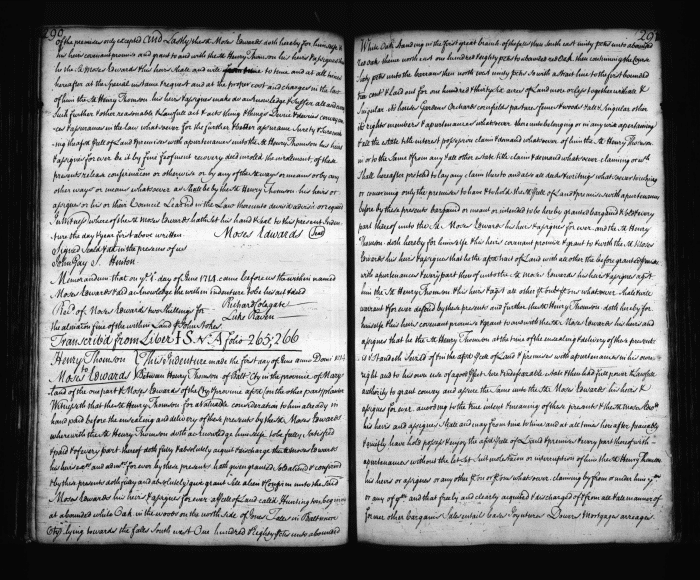 290
of the premises only excepted And Lastly the sd. Moses Edwards doth hereby for himself &
his heirs covenant promise and grant to and with the sd. Henry Thomson his heirs & assigns that
he the sd. Moses Edwards & his heirs shall and will from time to time and at all times
hereafter at the special instance request and at the proper cost and charges in the law
of him the sd. Henry Thomson his heirs & assigns make do acknowledge & suffer all and every
such further & other reasonable & Lawfull act & acts thing & things Devise & devises conveyances
& assurances in the law whatsoever for the further & better assurance surety & conveying
the afsd. psell of Land & premises with appurtenances unto the sd. Henry Thomson his heirs
& assigns for ever be it by fine feofment recovery deed inroled the inrolement of these
presents release confirmation or otherwise or by any of these ways or means or by any
other ways or means whatsoever as shall be by the sd. Henry Thomson his heirs or
assigns or his or their Council Learned in the Law thereunto devised advised or required
In witness whereof the sd. Moses Edwards hath set his hand & seal to this present Indenture
the day & year first above written
Moses Edwards (Seal)
Signed Seald & dd. in the presence of us
John Gay S. Hinton
Memorandum that on ye 1st. day of June 1714 came before us the within named
Moses Edwards & did acknowledge the within indenture to be his act & deed
Recd. of Moses Edwards two shillings for
Richard Colegate
Luke Raven
the alienation fine of the within Land John Stokes
Transcribd from Liber T S No. A folio 265, 266
Henry Thomson
to
Moses Edwards
This Indenture made the first day of June anno Domi 1714
Between Henry Thomson of Balt. Cty in the province of Maryland
of the one part & Moses Edwards of the Cty & province afsd. on the other part planter
Witnesseth that the sd. Henry Thomson for a valuable consideration to him already in
hand paid before the ensealing and delivery of these presents by the sd. Moses Edwards
wherewith the sd. Henry Thomson doth acknowledge himself to be fully satisfied
& paid & of every part thereof doth fully & absolutely acquit & discharge the sd. Moses Edwards
his heirs exrs. and admrs. for ever by these presents hath given granted Sold aliend & confirmd
& by these presents doth fully and absolutely give grant Sale alien & confirm unto the said
Moses Edwards his heirs & assigns for ever a psell of Land called Huntington beginning
at a bounded white Oak in the woods on the north side of Jones Falls in Baltimore
Cty & lying towards the falls South west One hundred & eighty ps. unto a bounded
291
White Oak standing in the first great branch of the falls then south east ninety poles unto a bounded
red oak then north east one hundred eighty poles to a bounded red Oak then continuing the Course
sixty poles unto the barrens then north west ninety poles & with a strait line to the first bounded
tree contg. & laid out for one hundred & thirty six acres of Land more or less together with all &
Singular its houses Gardens Orchards cornfields pastures fences & woods & all & singular other
its rights members & appurtenances whatsoever thereunto belonging or in any wise appertaining
& all the estate title interest possession claim & demand whatsoever of him the sd. Henry Thomson
in or to the same & from any & all other estate title claim & demand whatsoever claiming or wch.
shall hereafter pretend to lay any claim thereto and also all deeds & writings whatsoever touching
or concerning only the premises to have & to hold the sd. psell of Land & premises with appurtenances
before by these presents bargaind or meant or intended to be hereby granted bargaind & sold & every
part thereof unto the sd. Moses Edwards his heirs & assigns for ever and the sd. Henry
Thomson doth hereby for himself & his heirs covenant promise & grant to & with the sd. Moses
Edwards his heirs & assigns that he the afsd. tract of Land with all other the before granted premises
with appurtenances & every part thereof unto the sd. Moses Edwards his heirs & assigns agst.
him the sd. Henry Thomson & his heirs & agst. all other psons whatsoever shall & will
warrant & for ever defend by these presents and further the sd. Henry Thomson doth hereby for
himself & his heirs covenant promise & grant to & with the sd. Moses Edwards his heirs and
assigns that he the sd. Henry Thomson at the time of the ensealing & delivery of these presents
is & standeth Seized of & in the afsd. psell of Land & premises with appurtenances in his own
right and to his own use of a good perfect Sure & indefeasable estate & then hath full power & Lawfull
authority to grant convey and assure the same unto the sd. Moses Edwards his heirs &
assigns for ever according to the true intent & meaning of these presents & the sd. Moses Edwds.
his heirs and assigns shall and may from time to time and at all times hereafter peaceably
& quietly have hold possess & enjoy the afsd. psell of Land & premises & every part thereof with
appurtenances without the let Sut molestation or interruption of him the sd. Henry Thomson
his heirs or assigns or any other pson or psons whatsoever claiming by from or under him ym.
or any of ym. and that freely and clearly acquitted & discharged of & from all & all manner of
former other bargains Sales entails leases Joyntures Dowers Mortgage arrearages